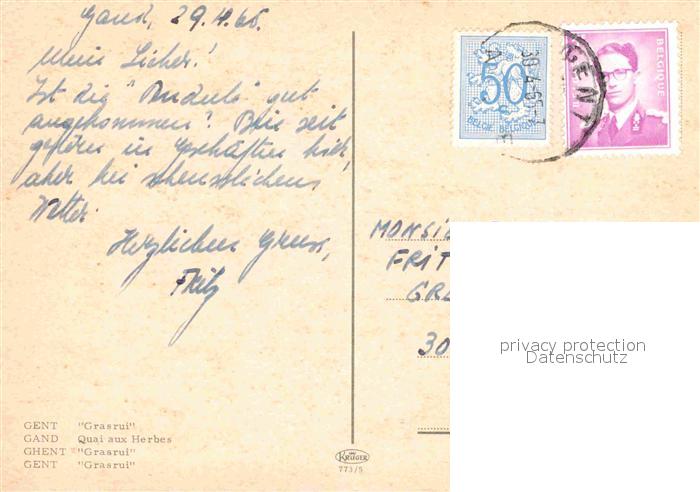 Gand, 29.4.65.
Mein Lieber!
Ist die "Puderli" gut
angekommen? Bin seit
gestern in Geschäften hier,
aber bei scheusslichem
Wetter.
Herzlichen Gruss,
Fritz
50
BELGIË BELGIQUE
GENT
30-4-65
BELGIQUE
MONSIE
FRIT
GRE
30
privacy protection
Datenschutz
GENT "Grasrui"
GAND Quai aux Herbes
GHENT "Grasrui"
GENT "Grasrui"
KRÜGER
773/5